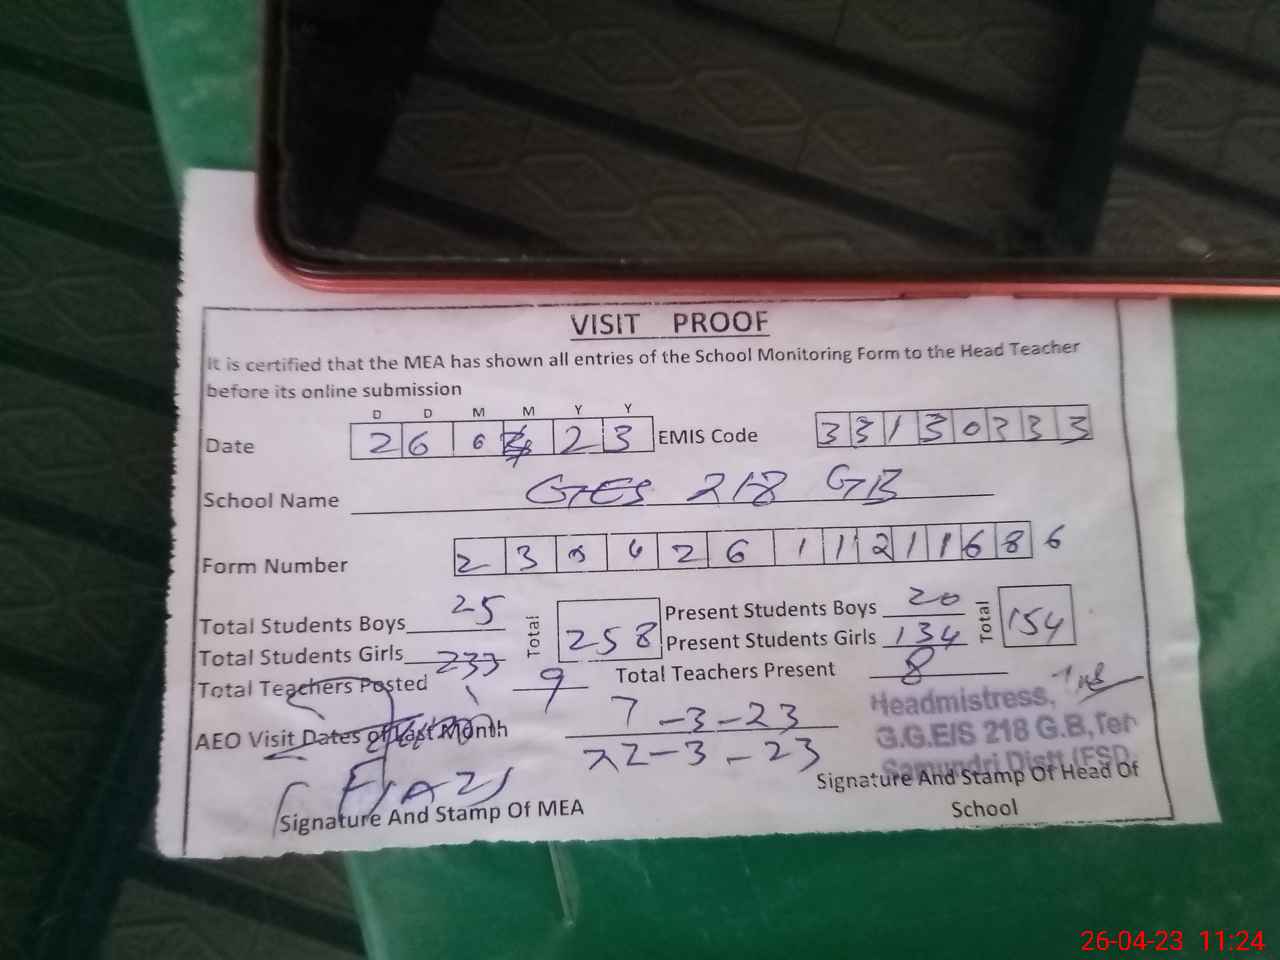 VISIT PROOF
It is certified that the MEA has shown all entries of the School Monitoring Form to the Head Teacher
before its online submission
D D M M Y Y
Date 2 6 0 4 2 3 EMIS Code 3 3 1 3 0 3 3 3
School Name GES 218 GB
Form Number 2 3 0 4 2 6 1 1 2 1 1 6 8 6
Total Students Boys 25 Total 258 Present Students Boys 20 Total 154
Total Students Girls 233 Present Students Girls 134
Total Teachers Posted 9 Total Teachers Present 8
AEO Visit Dates of Last Month 7-3-23
22-3-23
Headmistress,
G.G.E/S 218 G.B,Teh
Samundri Distt (FSD.
Signature And Stamp Of MEA
Signature And Stamp Of Head Of
School
26-04-23 11:24